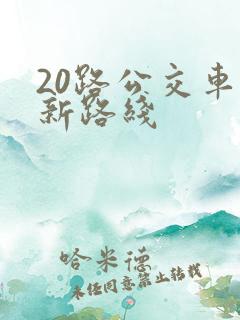 20路公交车
新路线
哈米德
未经同意禁止转载